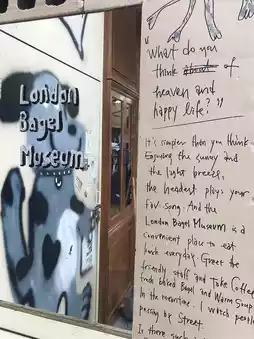 London
Bagel
Museum
"What do you
think about of
heaven and
happy life?"
It's simpler than you think
Enjoying the sunny and
the light breeze,
the headset plays your
fav song. And the
London Bagel Museum is a
convenient place to eat
here everyday. Greet the
friendly staff and Take Coffee
fresh baked Bagel and Warm Soup
In the meantime. I watch people
passing by Street.
Is there such